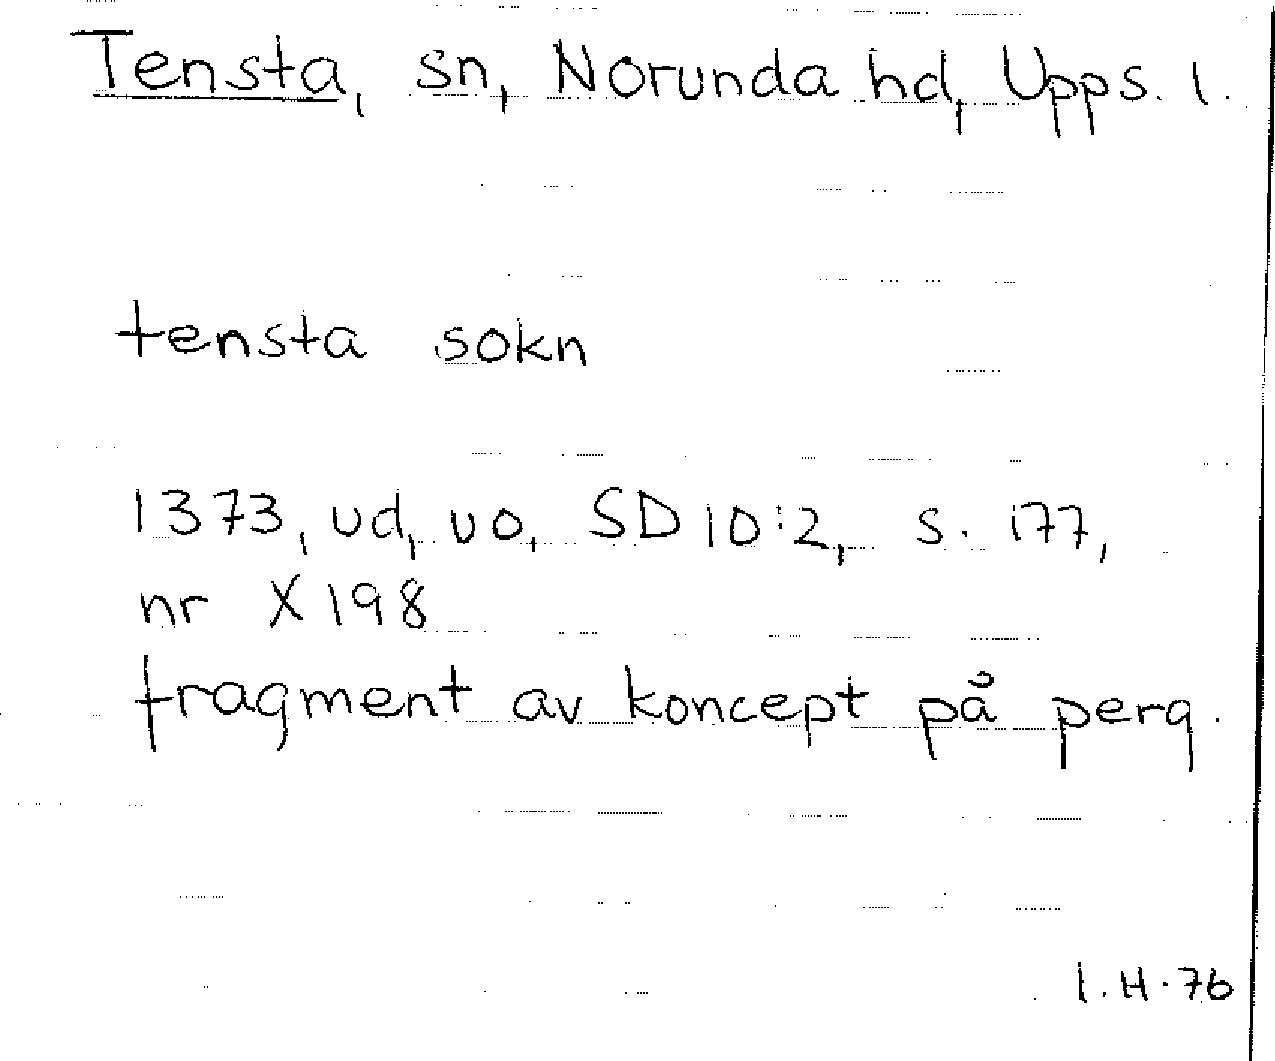 Tensta, sn, Norunda hd, Upps. l.
tensta sokn
1373, ud, uo, SD 10:2, s. 177,
nr X 198
fragment av koncept på perg.
I.H.76